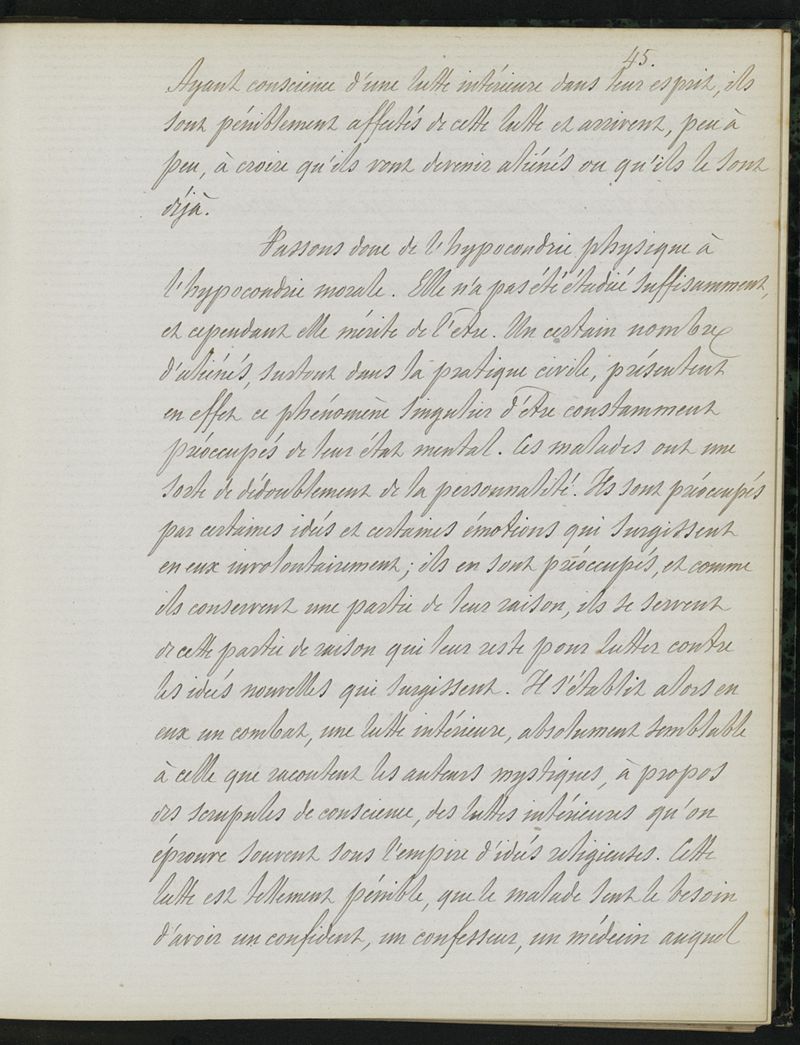 45.
Ayant conscience d'une lutte intérieure dans leur esprit, ils
sont péniblement affectés de cette lutte et arrivent, peu à
peu, à croire qu'ils vont devenir aliénés ou qu'ils le sont
déjà.
Passons donc de l'hypocondrie physique à
l'hypocondrie morale. Elle n'a pas été étudié suffisamment,
et cependant elle mérite de l'être. Un certain nombre
d'aliénés, surtout dans la pratique civile, présentent
en effet ce phénomène singulier d'être constamment
préoccupés de leur état mental. Ces malades ont une
sorte de dédoublement de la personnalité. Ils sont préoccupés
par certaines idées et certaines émotions qui surgissent
en eux involontairement; ils en sont préoccupés, et comme
ils conservent une partie de leur raison, ils se servent
de cette partie de raison qui leur reste pour lutter contre
les idées nouvelles qui surgissent. Il s'établit alors en
eux un combat, une lutte intérieure, absolument semblable
à celle que racontent les auteurs mystiques, à propos
des scrupules de conscience, des luttes intérieures qu'on
éprouve souvent sous l'empire d'idées religieuses. Cette
lutte est tellement pénible, que le malade sent le besoin
d'avoir un confident, un confesseur, un médecin auquel